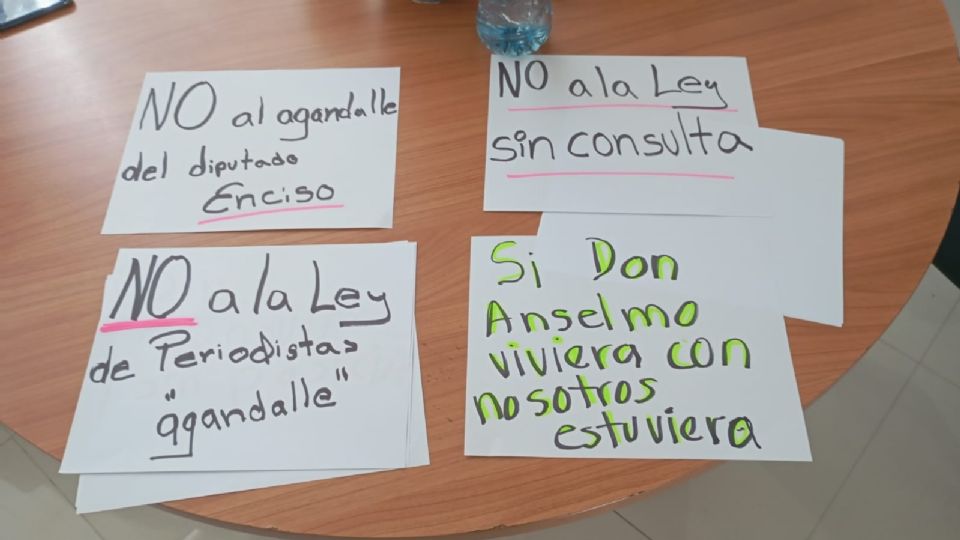 NO al agandalle
del diputado
Enciso
NO a la Ley
sin consulta
NO a la Ley
de Periodistas
"agandalle"
Si Don
Anselmo
viviera con
nosotros
estuviera